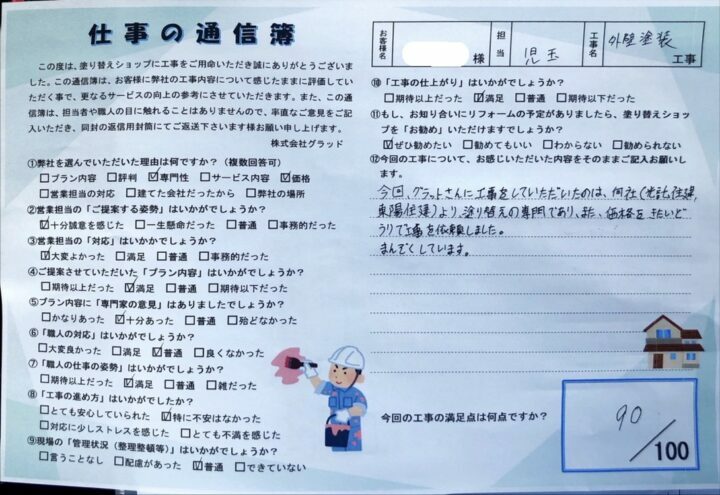 仕事の通信簿
この度は、塗り替えショップに工事をご用命いただき誠にありがとうございま
した。この通信簿は、お客様に弊社の工事内容について感じたままに評価してい
ただく事で、更なるサービスの向上の参考にさせていただきます。また、この通
信簿は、担当者や職人の目に触れることはありませんので、率直なご意見をご記
入いただき、同封の返信用封筒にてご返送下さいます様お願い申し上げます。
株式会社グラッド
①弊社を選んでいただいた理由は何ですか？（複数回答可）
□プラン内容 □評判 ☑専門性 □サービス内容 ☑価格
□営業担当の対応 □建てた会社だったから □弊社の場所
②営業担当の「ご提案する姿勢」はいかがでしょうか？
☑十分誠意を感じた □一生懸命だった □普通 □事務的だった
③営業担当の「対応」はいかかでしょうか？
☑大変よかった □満足 □普通 □事務的だった
④ご提案させていただいた「プラン内容」はいかがでしょうか？
□期待以上だった ☑満足 □普通 □期待以下だった
⑤プラン内容に「専門家の意見」はありましたでしょうか？
□かなりあった ☑十分あった □普通 □殆どなかった
⑥「職人の対応」はいかがでしょうか？
□大変良かった □満足 ☑普通 □良くなかった
⑦「職人の仕事の姿勢」はいかがでしょうか？
□期待以上だった ☑満足 □普通 □雑だった
⑧「工事の進め方」はいかがでしたか？
□とても安心していられた ☑特に不安はなかった
□対応に少しストレスを感じた □とても不満を感じた
⑨現場の「管理状況（整理整頓等）」はいかがでしょうか？
□言うことなし □配慮があった ☑普通 □できていない
お客様名 様 担当 児玉 工事名 外壁塗装 工事
⑩「工事の仕上がり」はいかがでしょうか？
□期待以上だった ☑満足 □普通 □期待以下だった
⑪もし、お知り合いにリフォームの予定がありましたら、塗り替えショッ
プを「お勧め」いただけますでしょうか？
☑ぜひ勧めたい □勧めてもいい □わからない □勧められない
⑫今回の工事について、お感じいただいた内容をそのままご記入お願いし
ます。
今回、グラットさんに工事をしていただいたのは、何社(光社住建,
東陽住建)より、塗り替えの専門であり、また、価格もだいど
うりで工事を依頼しました。
まんぞくしています。
今回の工事の満足点は何点ですか？
90
/100